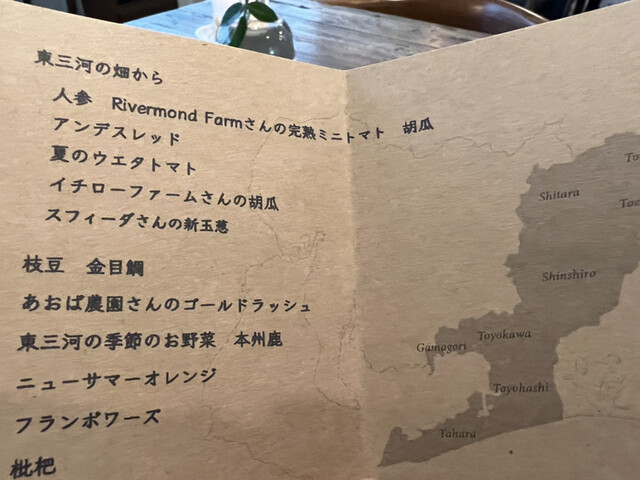 東三河の畑から
人参 Rivermond Farmさんの完熟ミニトマト 胡瓜
アンデスレッド
夏のウエタトマト
イチローファームさんの胡瓜
スフィーダさんの新玉葱
枝豆 金目鯛
あおば農園さんのゴールドラッシュ
東三河の季節のお野菜 本州鹿
ニューサマーオレンジ
フランボワーズ
枇杷
Shitara
Shinshiro
Gamagori
Toyokawa
Toyohashi
Tahara